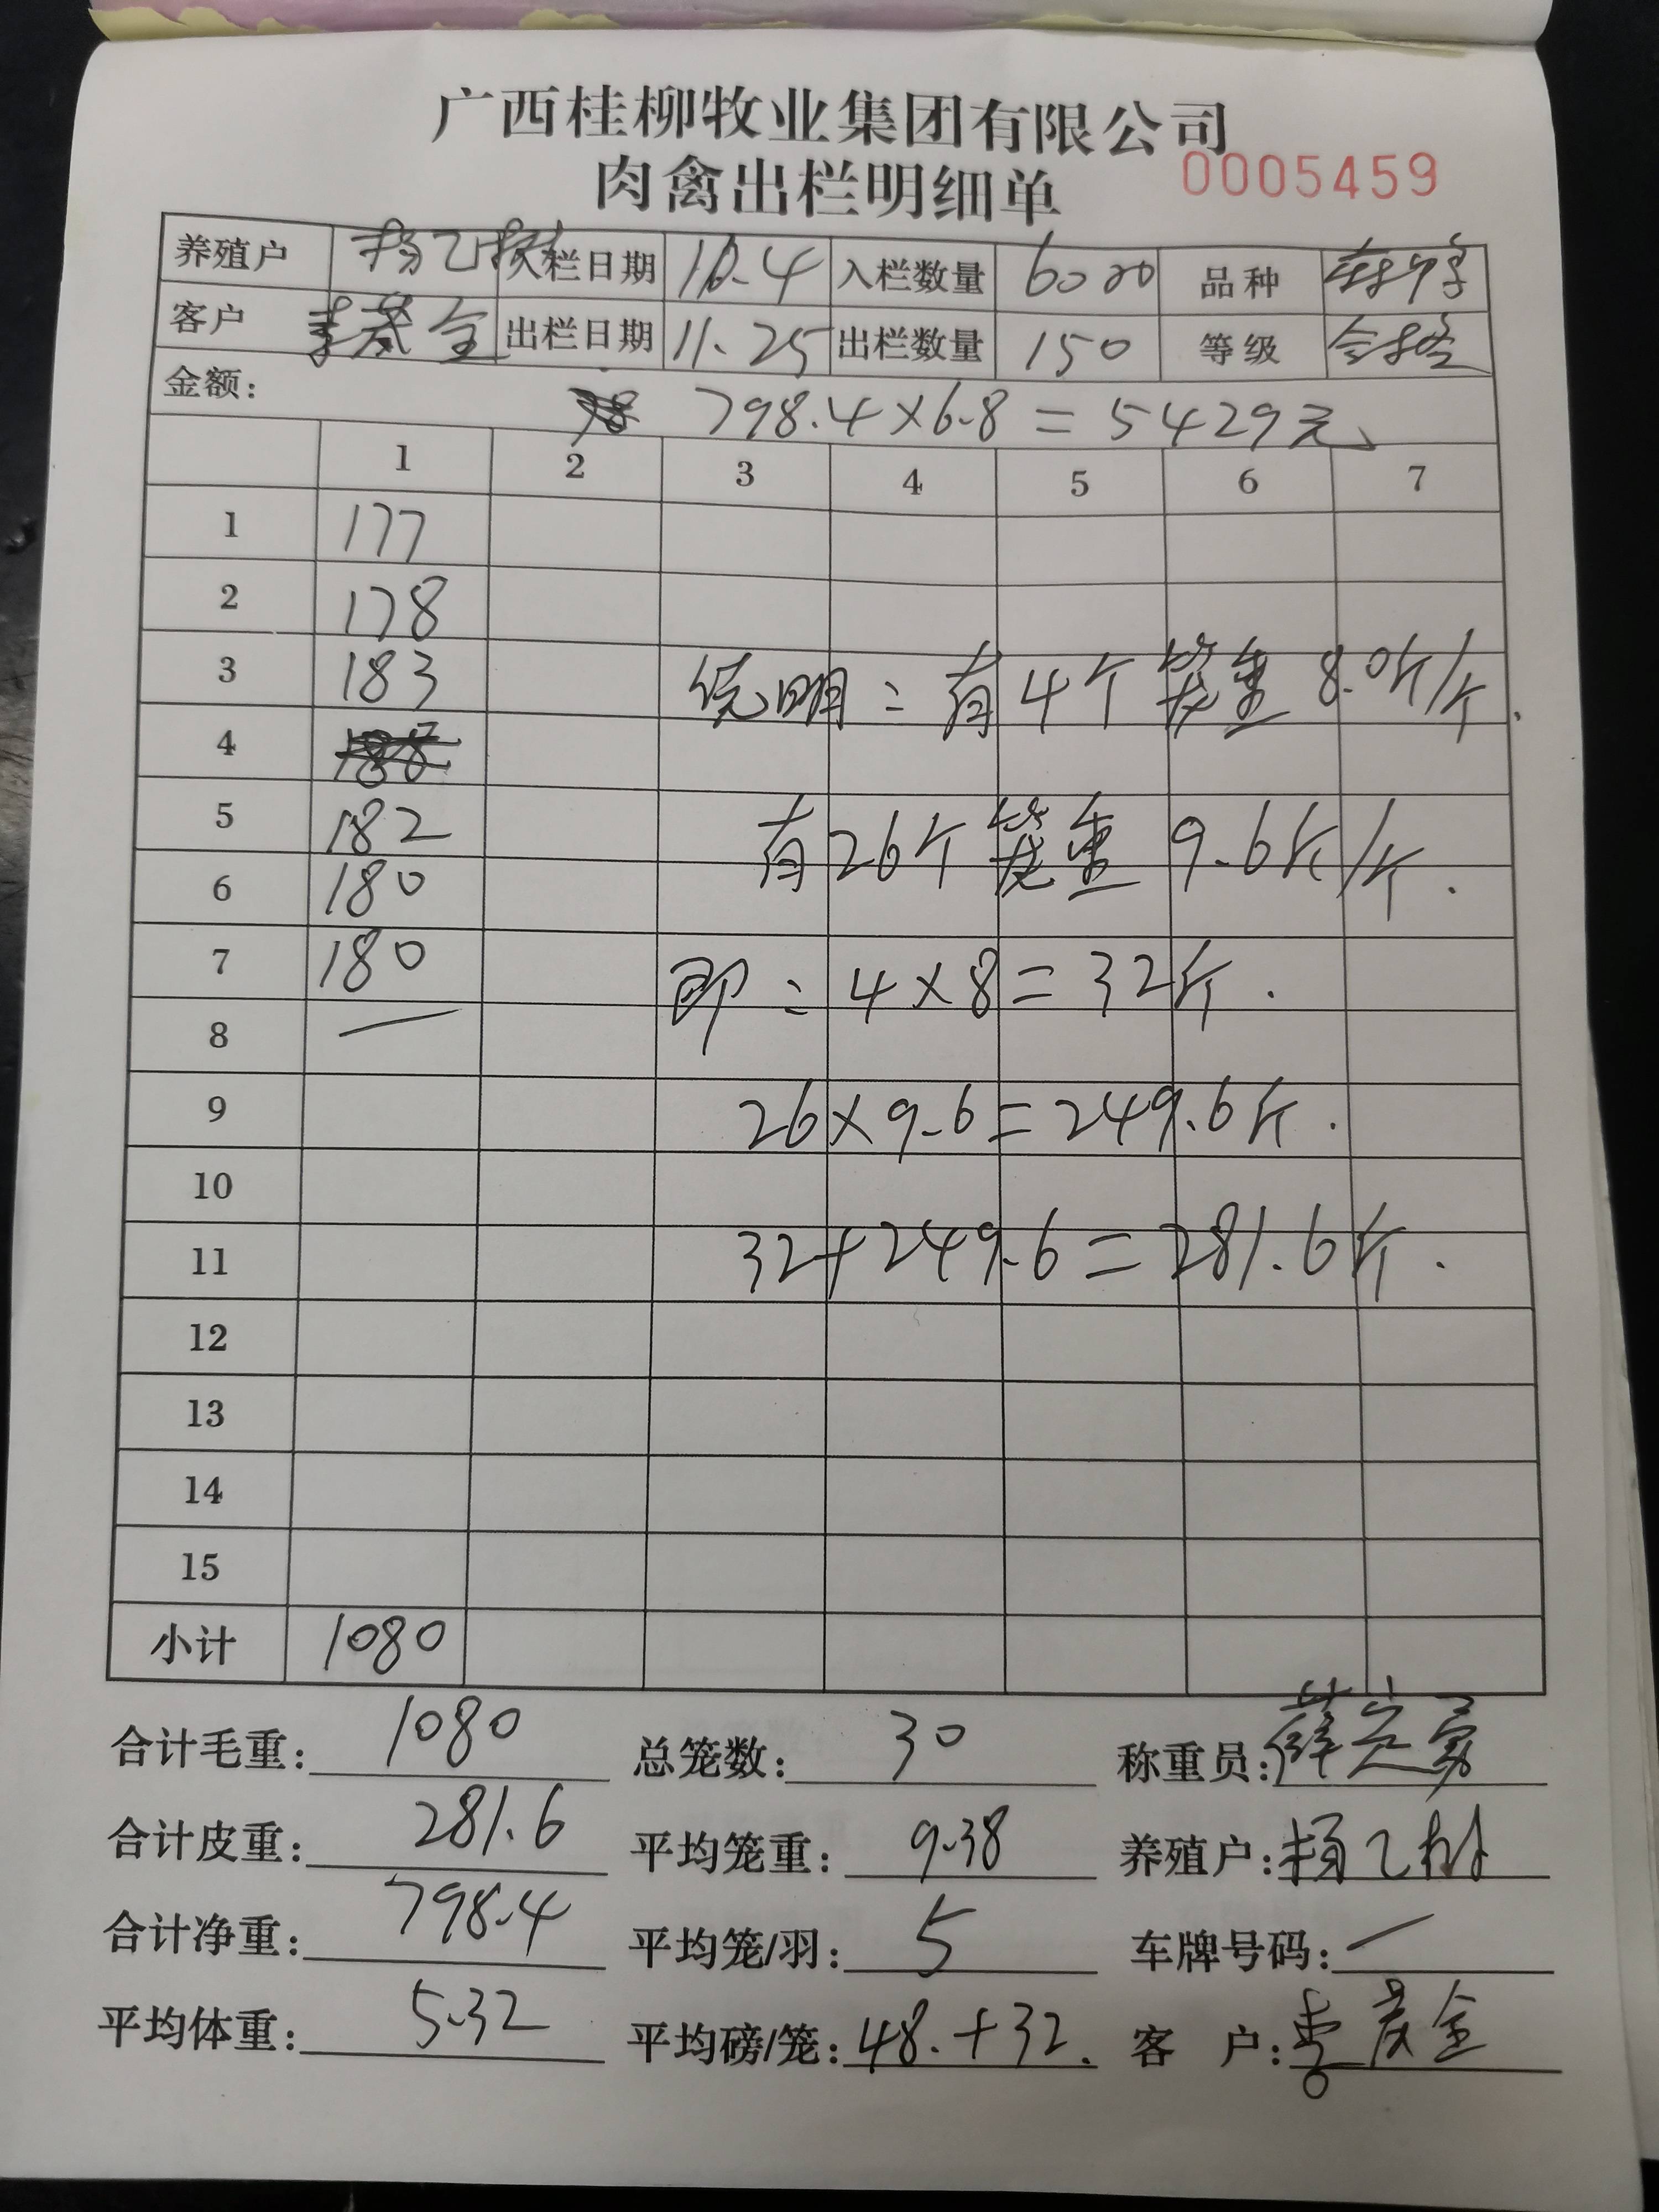 广西桂柳牧业集团有限公司
肉禽出栏明细单 0005459
养殖户 杨乙树 入栏日期 10.4 入栏数量 6000 品种
客户 全 出栏日期 11.25 出栏数量 150 等级
金额: 798.4×6.8=5429元
1 2 3 4 5 6 7
1 177
2 178
3 183 说明:有4个笼重8.0斤/个.
4
5 182 有26个笼重9.6斤/个.
6 180
7 180 即:4×8=32斤.
8 —
9 26×9.6=249.6斤.
10
11 32+249.6=281.6斤.
12
13
14
15
小计 1080
合计毛重: 1080 总笼数: 30 称重员:薛
合计皮重: 281.6 平均笼重: 9.38 养殖户:杨乙树
合计净重: 798.4 平均笼/羽: 5 车牌号码:—
平均体重: 5.32 平均磅/笼: 48.+32. 客户: 全